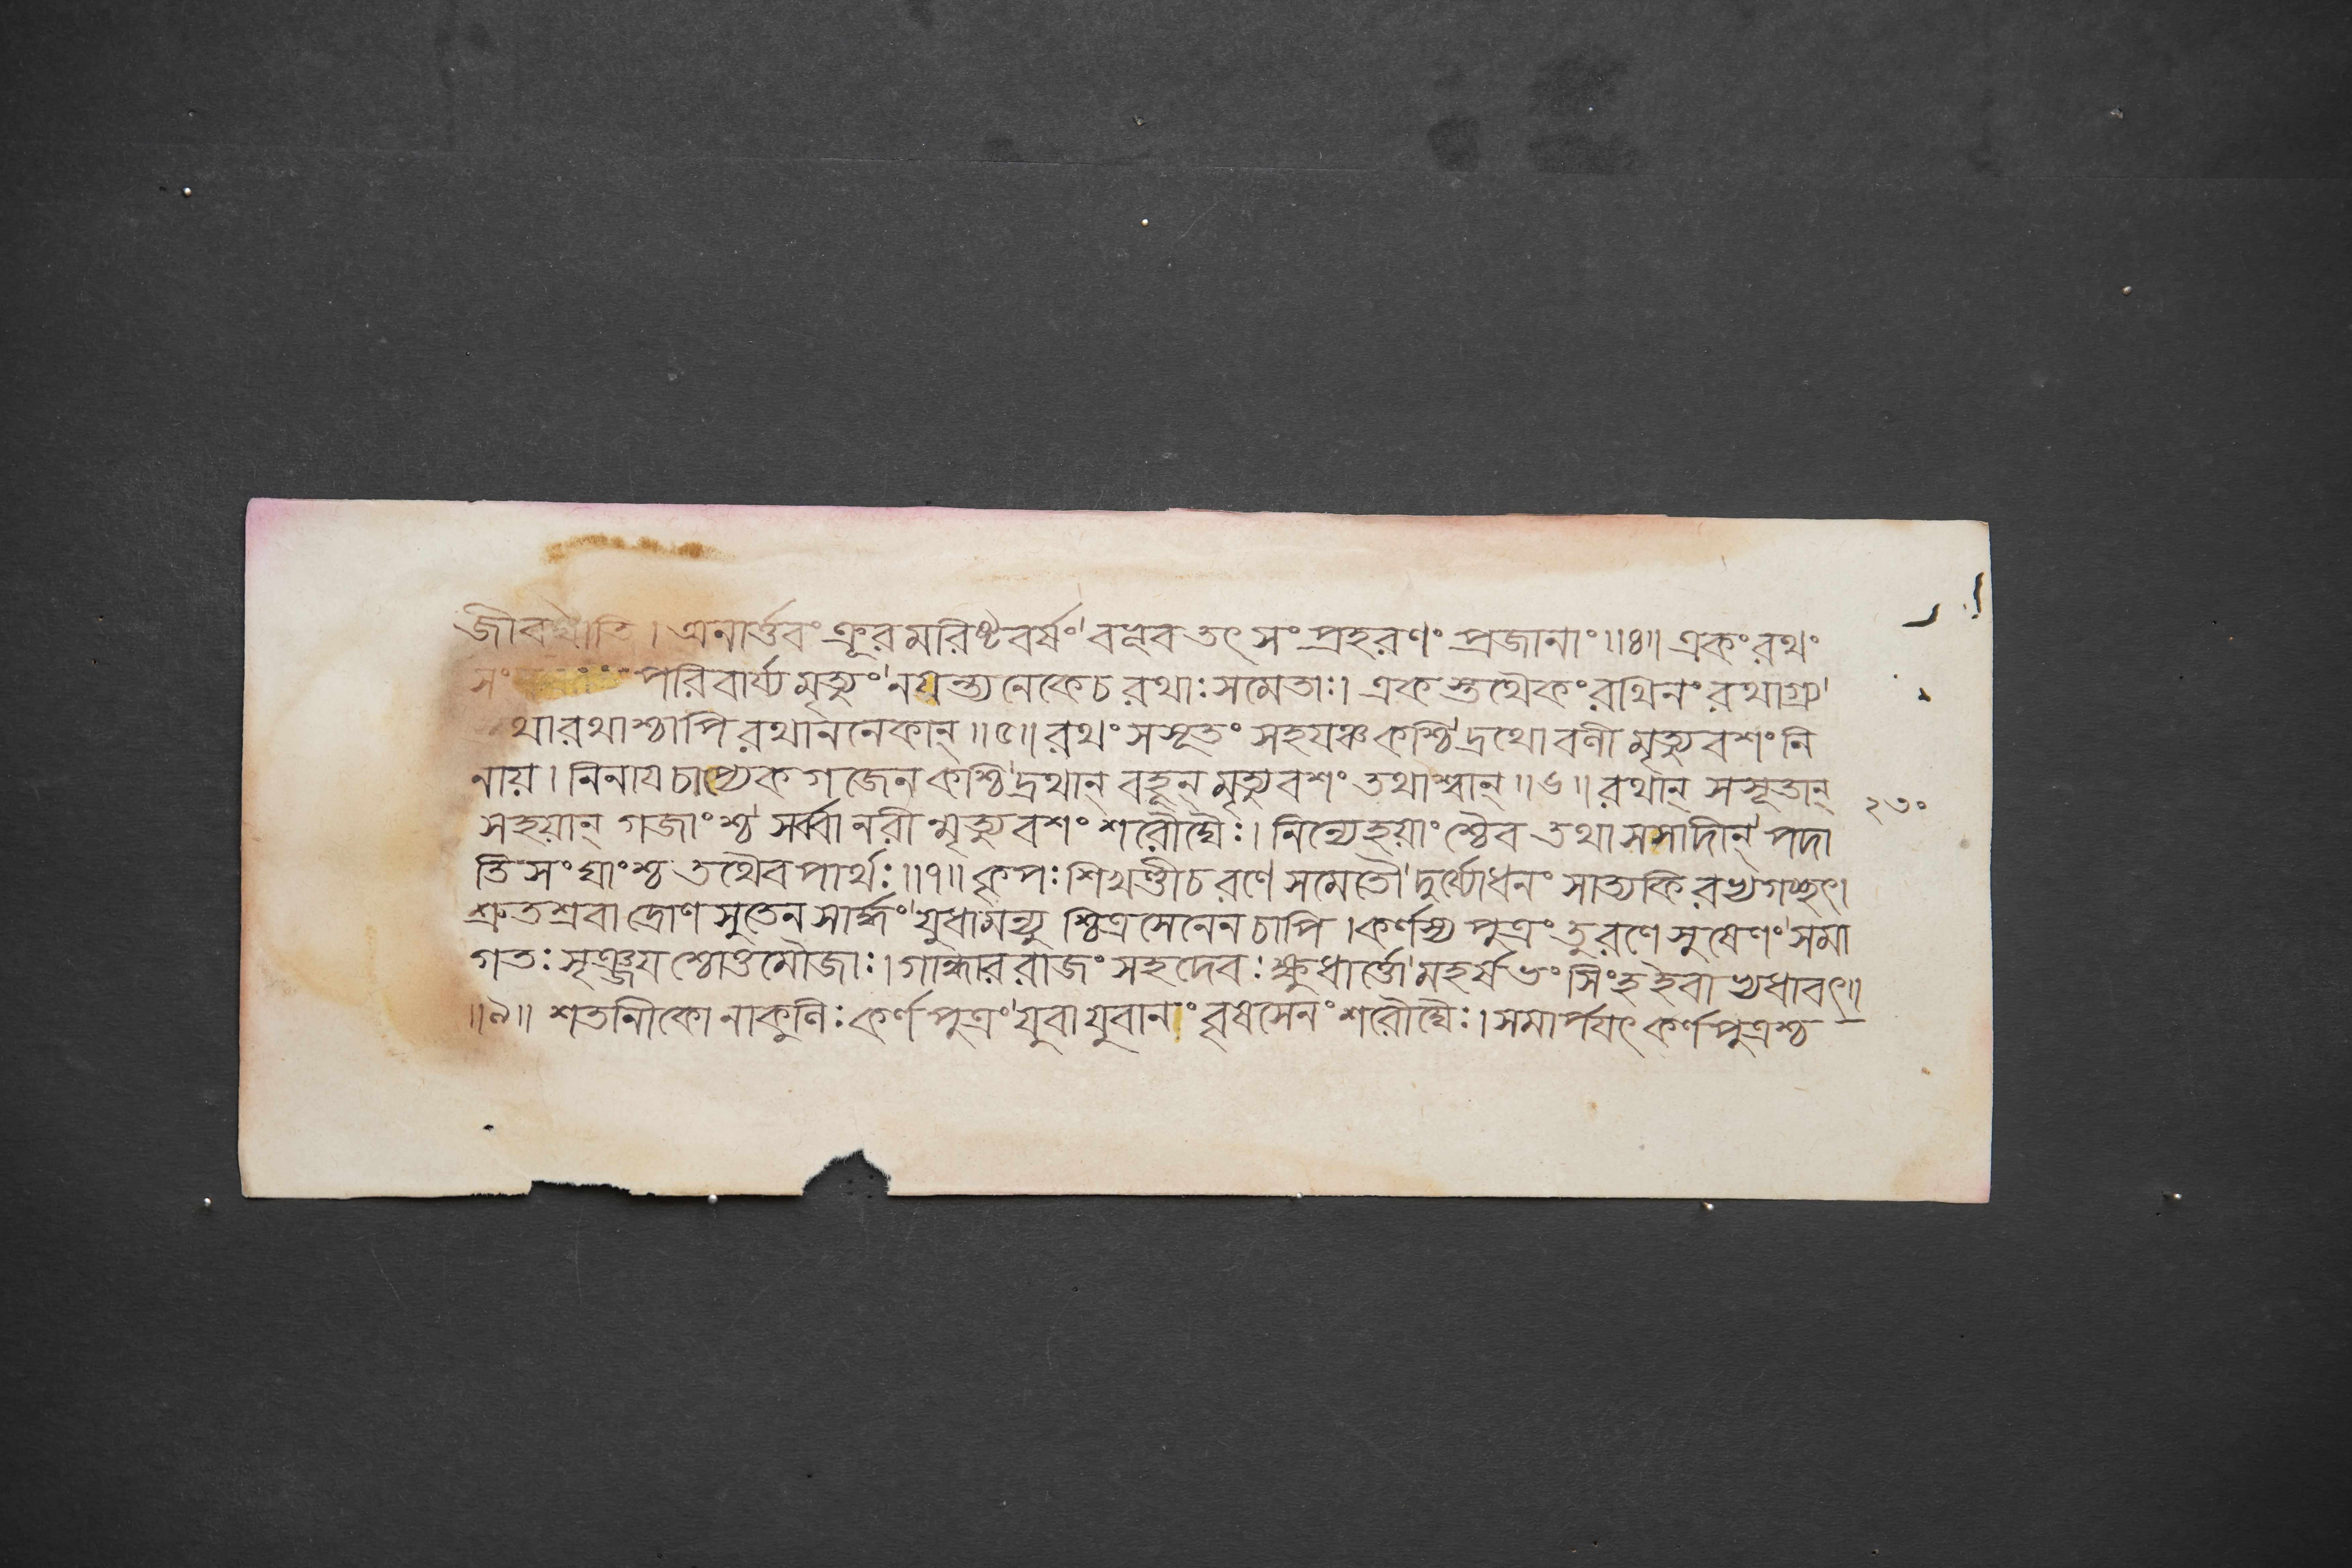 জীবঘাতি। অনার্ত্তবং ক্রূরমরিষ্টবর্ষং বভূব তৎ সংপ্রহরণং প্রজানাং॥৪॥ একং রথং
পরিবার্য্য মৃত্যুং নয়ন্ত্যনেকেচ রথাঃ সমেতাঃ। একস্তথৈকং রথিনং রথাগ্র্য
থারথাশ্চাপি রথাননেকান্॥৫॥ রথং সসূতং সহযঞ্চ কশ্চিদ্রথো বণী মৃত্যুবশং নি
নায়। নিনায চাপ্যেক গজেন কশ্চিদ্রথান্ বহূন্ মৃত্যুবশং তথাশ্বান্॥৬॥ রথান্ সসূতান্
সহয়ান্ গজাংশ্চ সর্ব্বানরীন্মৃত্যুবশং শরৌঘৈঃ। নিন্যেহয়াংশ্চৈব তথা সসাদীন্ পদা
তিসংঘাংশ্চ তথৈব পার্থঃ॥৭॥ কৃপঃ শিখণ্ডীচ রণে সমেতৌ দুর্য্যোধনং সাত্যকিরভ্যগচ্ছৎ।
শ্রুতশ্রবা দ্রোণসুতেন সার্দ্ধং যুধামন্যুশ্চিত্রসেনেন চাপি। কর্ণস্য পুত্রং তুরণে সুষেণং সমা
গতঃ সৃঞ্জয়শ্চোত্তমৌজাঃ। গান্ধাররাজং সহদেবঃ ক্ষুধার্ত্তো মহর্ষভং সিংহইবাভ্যধাবৎ॥
॥৯॥ শতনীকো নাকুণিঃ কর্ণপুত্রং যুবা যুবানং বৃষসেনং শরৌঘৈঃ। সমার্পযৎ কর্ণপুত্রশ্চ
২৩০